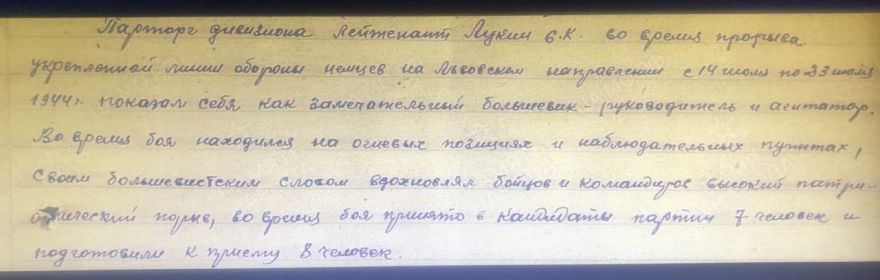 Парторг дивизиона лейтенант Лукин В.К. во время прорыва
укрепленной линии обороны немцев на Львовском направлении с 14 июля по 23 июля
1944г. показал себя как замечательный большевик - руководитель и агитатор.
Во время боя находился на огневых позициях и наблюдательных пунктах,
своим большевистским словом вдохновлял бойцов и командиров высокий патри-
отический порыв, во время боя принято в кандидаты партии 7 человек и
подготовили к приему 8 человек.